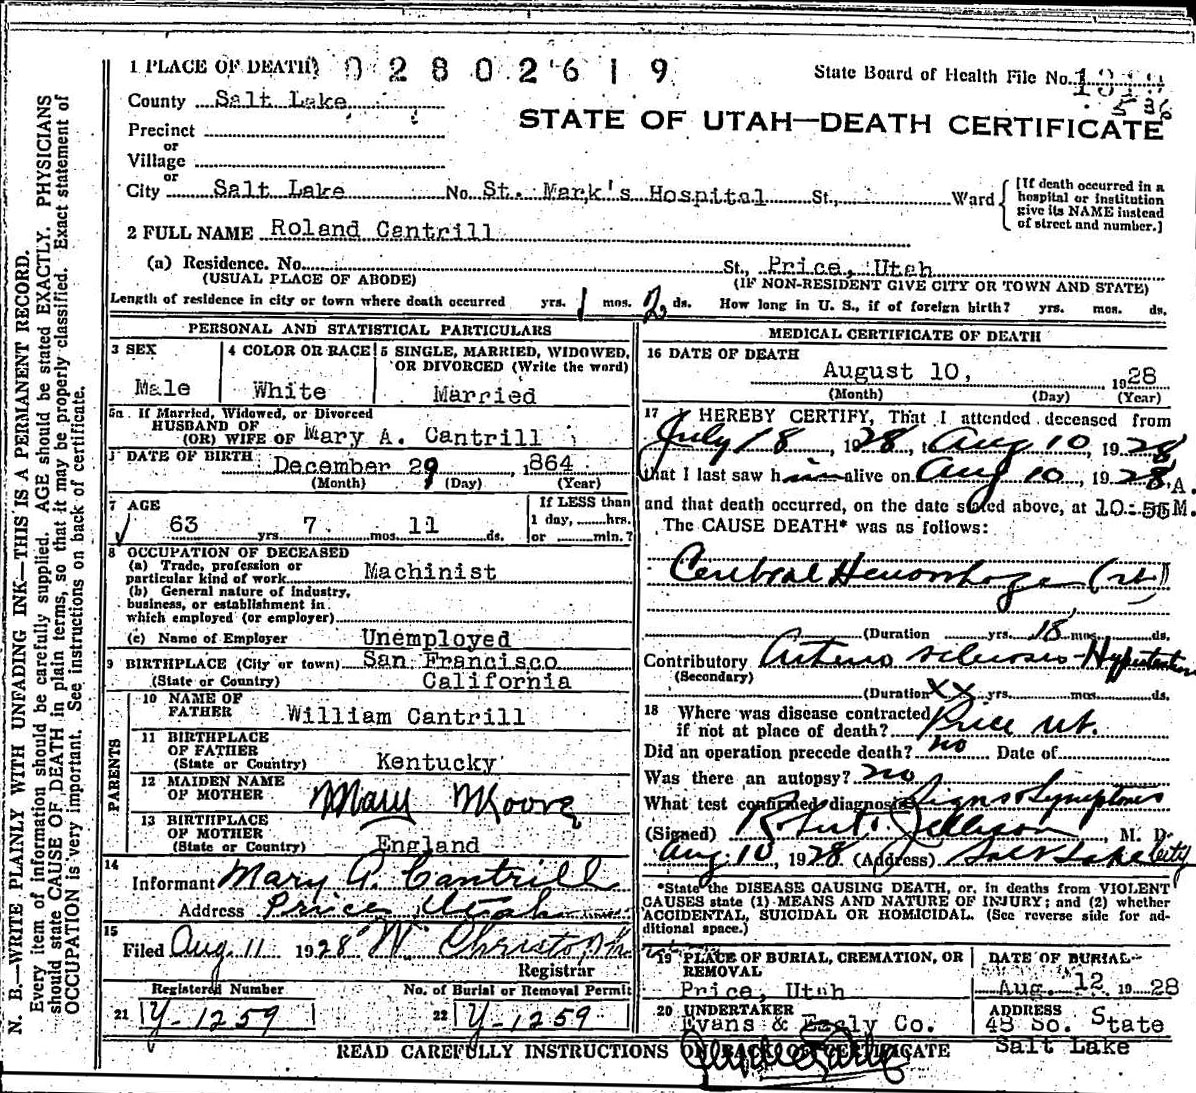 1 PLACE OF DEATH 0 2 8 0 2 6 1 9 State Board of Health File No.
County Salt Lake 536
STATE OF UTAH—DEATH CERTIFICATE
Precinct
or
Village
or
City Salt Lake No. St. Mark's Hospital St., Ward
[If death occurred in a
hospital or institution
give its NAME instead
of street and number.]
2 FULL NAME Roland Cantrill
(a) Residence. No. St., Price, Utah
(USUAL PLACE OF ABODE) (IF NON-RESIDENT GIVE CITY OR TOWN AND STATE)
Length of residence in city or town where death occurred yrs. 1 mos. 2 ds. How long in U. S., if of foreign birth? yrs. mos. ds.
PERSONAL AND STATISTICAL PARTICULARS
3 SEX 4 COLOR OR RACE 5 SINGLE, MARRIED, WIDOWED,
OR DIVORCED (Write the word)
Male White Married
5a If Married, Widowed, or Divorced
HUSBAND OF
(OR) WIFE OF Mary A. Cantrill
DATE OF BIRTH December 29, 1864
(Month) (Day) (Year)
7 AGE If LESS than
63 yrs. 7 mos. 11 ds. 1 day, hrs.
or min.?
8 OCCUPATION OF DECEASED
(a) Trade, profession or
particular kind of work Machinist
(b) General nature of industry,
business, or establishment in
which employed (or employer)
(c) Name of Employer Unemployed
9 BIRTHPLACE (City or town) San Francisco
(State or Country) California
PARENTS
10 NAME OF
FATHER William Cantrill
11 BIRTHPLACE
OF FATHER
(State or Country) Kentucky
12 MAIDEN NAME
OF MOTHER Mary Moore
13 BIRTHPLACE
OF MOTHER
(State or Country) England
14
Informant Mary A. Cantrill
Address Price, Utah
15
Filed Aug. 11 1928 W Christoph
Registrar
Registered Number No. of Burial or Removal Permit
21 Y-1259 22 Y-1259
MEDICAL CERTIFICATE OF DEATH
16 DATE OF DEATH
August 10, 1928
(Month) (Day) (Year)
17 I HEREBY CERTIFY, That I attended deceased from
July 18, 1928, t Aug 10, 1928
that I last saw him alive on Aug 10, 1928, A.
and that death occurred, on the date stated above, at 10:55 M.
The CAUSE DEATH* was as follows:
Cerebral Hemorrhage (rt)
(Duration yrs. 18 mos. ds.
Contributory Arterio sclerosis-Hypertension
(Secondary)
(Duration XX yrs. mos. ds.
18 Where was disease contracted
if not at place of death? Price Ut.
Did an operation precede death? no Date of
Was there an autopsy? no
What test confirmed diagnosis Signs & Symptoms
(Signed) Robert Jellison, M. D.
Aug 10 1928 (Address) Salt Lake City
*State the DISEASE CAUSING DEATH, or, in deaths from VIOLENT
CAUSES state (1) MEANS AND NATURE OF INJURY; and (2) whether
ACCIDENTAL, SUICIDAL OR HOMICIDAL. (See reverse side for ad-
ditional space.)
19 PLACE OF BURIAL, CREMATION, OR DATE OF BURIAL
REMOVAL
Price, Utah Aug. 12 1928
20 UNDERTAKER ADDRESS
Evans & Early Co. 48 So. State
Salt Lake
READ CAREFULLY INSTRUCTIONS ON BACK OF CERTIFICATE
N. B.—WRITE PLAINLY WITH UNFADING INK—THIS IS A PERMANENT RECORD.
Every item of information should be carefully supplied. AGE should be stated EXACTLY. PHYSICIANS
should state CAUSE OF DEATH in plain terms, so that it may be properly classified. Exact statement of
OCCUPATION is very important. See instructions on back of certificate.